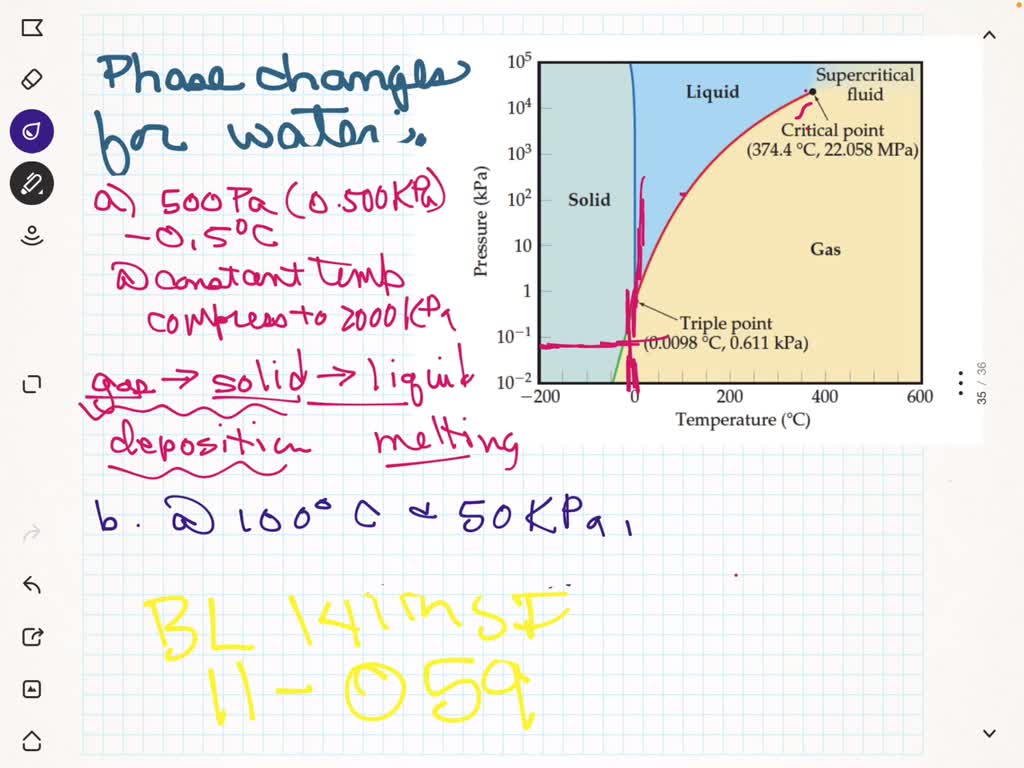 Phase changes
for water:
a) 500 Pa (0.500 KPa)
-0.5°C
@ constant temp
compress to 2000 KPa
gas → solid → liquid
deposition melting
b. @ 100° C & 50 KPa,
BL
11-059
10⁵
10⁴
10³
10²
10
1
10⁻¹
10⁻²
Pressure (kPa)
Solid
Liquid
Supercritical
fluid
Critical point
(374.4 °C, 22.058 MPa)
Gas
Triple point
(0.0098 °C, 0.611 kPa)
−200 0 200 400 600
Temperature (°C)
35 / 36